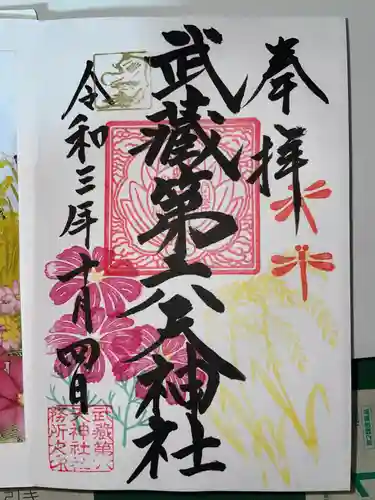 奉拝
武蔵第六天神社
令和三年十月四日
武蔵第六
天神社社
務所之印